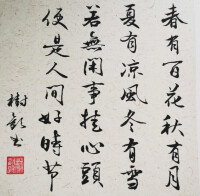 春有百花秋有月
夏有凉風冬有雪
若無閑事挂心頭
便是人间好時节
樹彭书